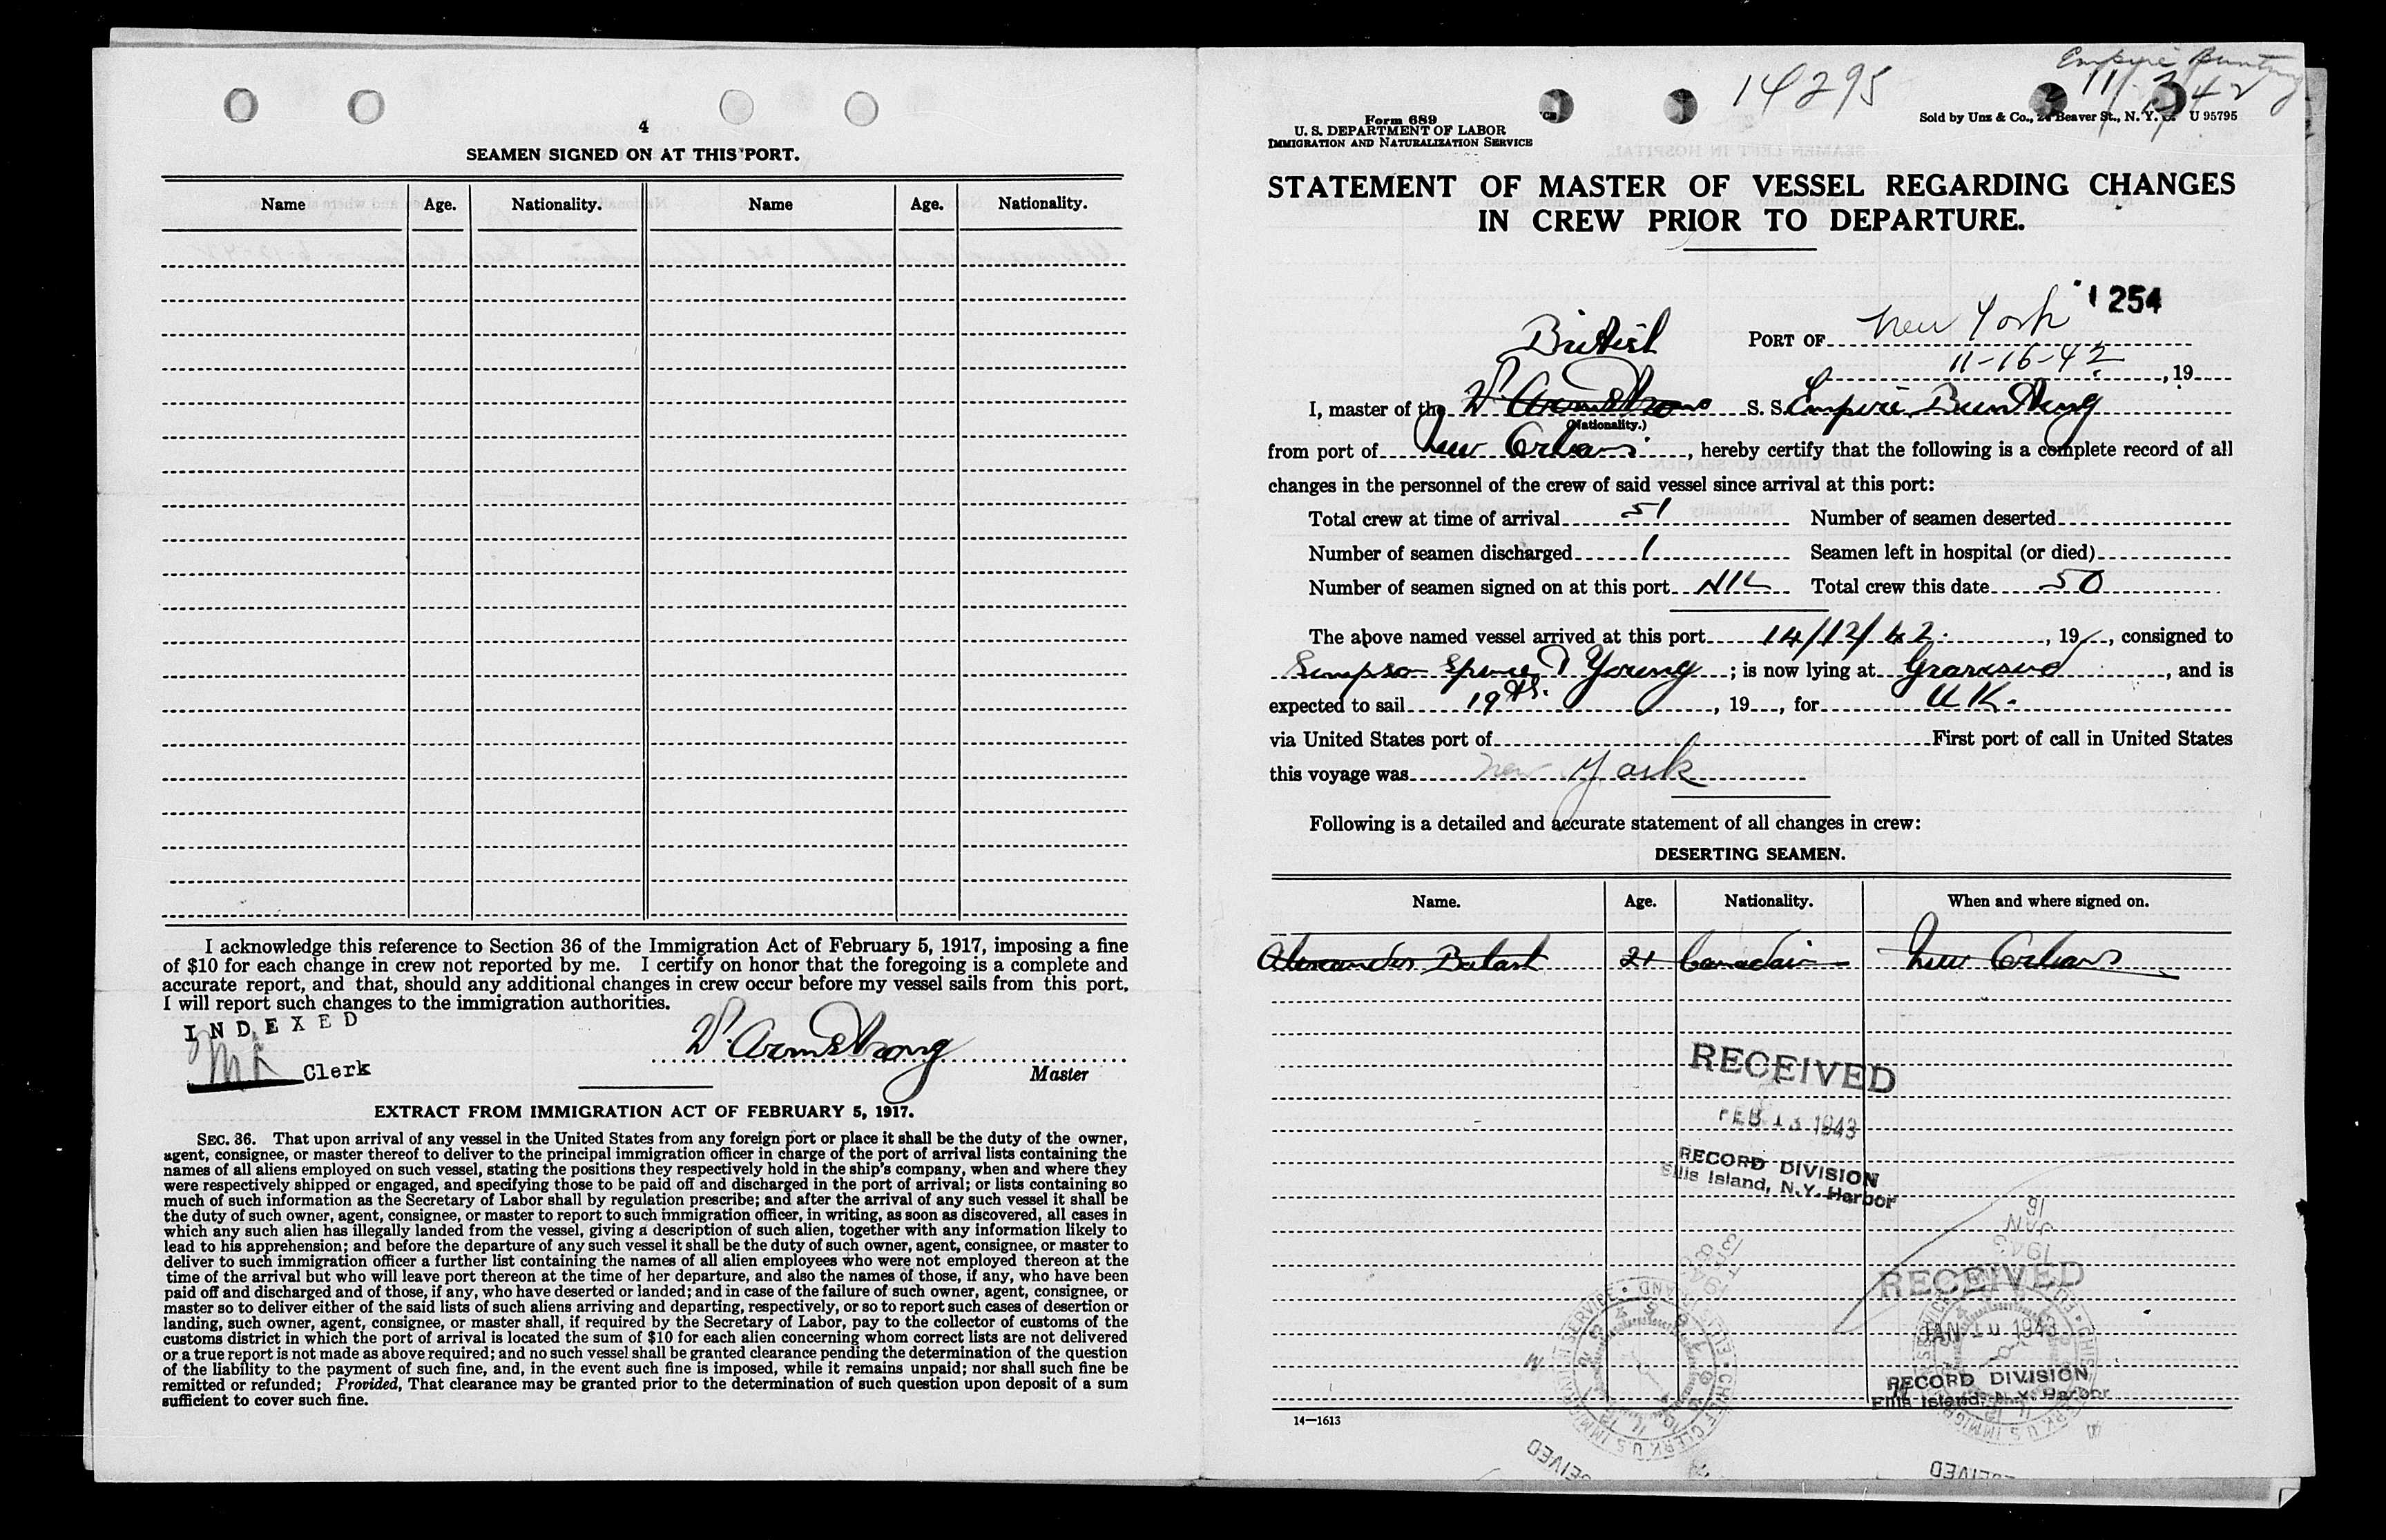 4
SEAMEN SIGNED ON AT THIS PORT.
Name Age. Nationality. Name Age. Nationality.
I acknowledge this reference to Section 36 of the Immigration Act of February 5, 1917, imposing a fine
of $10 for each change in crew not reported by me. I certify on honor that the foregoing is a complete and
accurate report, and that, should any additional changes in crew occur before my vessel sails from this port,
I will report such changes to the immigration authorities.
INDEXED
Clerk
W. Armstrong
Master
EXTRACT FROM IMMIGRATION ACT OF FEBRUARY 5, 1917.
SEC. 36. That upon arrival of any vessel in the United States from any foreign port or place it shall be the duty of the owner,
agent, consignee, or master thereof to deliver to the principal immigration officer in charge of the port of arrival lists containing the
names of all aliens employed on such vessel, stating the positions they respectively hold in the ship's company, when and where they
were respectively shipped or engaged, and specifying those to be paid off and discharged in the port of arrival; or lists containing so
much of such information as the Secretary of Labor shall by regulation prescribe; and after the arrival of any such vessel it shall be
the duty of such owner, agent, consignee, or master to report to such immigration officer, in writing, as soon as discovered, all cases in
which any such alien has illegally landed from the vessel, giving a description of such alien, together with any information likely to
lead to his apprehension; and before the departure of any such vessel it shall be the duty of such owner, agent, consignee, or master to
deliver to such immigration officer a further list containing the names of all alien employees who were not employed thereon at the
time of the arrival but who will leave port thereon at the time of her departure, and also the names of those, if any, who have been
paid off and discharged and of those, if any, who have deserted or landed; and in case of the failure of such owner, agent, consignee, or
master so to deliver either of the said lists of such aliens arriving and departing, respectively, or so to report such cases of desertion or
landing, such owner, agent, consignee, or master shall, if required by the Secretary of Labor, pay to the collector of customs of the
customs district in which the port of arrival is located the sum of $10 for each alien concerning whom correct lists are not delivered
or a true report is not made as above required; and no such vessel shall be granted clearance pending the determination of the question
of the liability to the payment of such fine, and, in the event such fine is imposed, while it remains unpaid; nor shall such fine be
remitted or refunded; Provided, That clearance may be granted prior to the determination of such question upon deposit of a sum
sufficient to cover such fine.
Empire Bunting
14295
Form 689
U. S. DEPARTMENT OF LABOR
IMMIGRATION AND NATURALIZATION SERVICE
Sold by Unz & Co., 24 Beaver St., N. Y. U 95795
STATEMENT OF MASTER OF VESSEL REGARDING CHANGES
IN CREW PRIOR TO DEPARTURE.
1254
British PORT OF New York
11-16-42, 19
I, master of the W. Armstrong S. S. Empire Bunting
(Nationality.)
from port of New Orleans, hereby certify that the following is a complete record of all
changes in the personnel of the crew of said vessel since arrival at this port:
Total crew at time of arrival 51 Number of seamen deserted
Number of seamen discharged 1 Seamen left in hospital (or died)
Number of seamen signed on at this port NIL Total crew this date 50
The above named vessel arrived at this port 14/12/42., 19, consigned to
Simpson Spence & Young; is now lying at, and is
expected to sail 19th., 19, for U K.
via United States port of First port of call in United States
this voyage was New York
Following is a detailed and accurate statement of all changes in crew:
DESERTING SEAMEN.
Name. Age. Nationality. When and where signed on.
Alexander 21 Canadain New Orleans
RECEIVED
FEB 13 1943
RECORD DIVISION
Ellis Island, N.Y. Harbor
16
JAN
1943
RECEIVED
JAN 10 1943
RECORD DIVISION
Ellis Island, N.Y. Harbor
14—1613